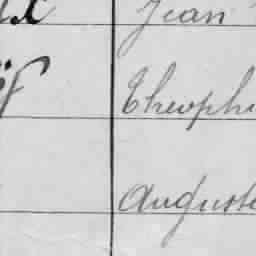 Jean
Theophi
Auguste